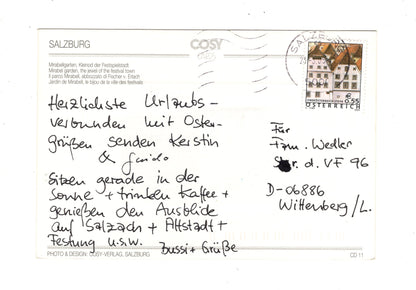 SALZBURG
Mirabellgarten, Kleinod der Festspielstadt
Mirabell garden, the jewel of the festival town
Il parco Mirabell, abbozzato di Fischer v. Erlach
Jardin de Mirabell, le bijou de la ville des festivals
COSY
SALZBURG
0,55
ÖSTERREICH
Herzlichste Urlaubs-
verbunden mit Oster-
grüßen senden Kerstin
& Guido
Sitzen gerade in der
Sonne + trinken Kaffee +
genießen den Ausblick
auf Salzach + Altstadt +
Festung u.s.w.
Bussi + Grüße
Für
Fam. Wedler
Str. d. VF 96
D-06886
Wittenberg/L.
PHOTO & DESIGN: COSY-VERLAG, SALZBURG
CD 11